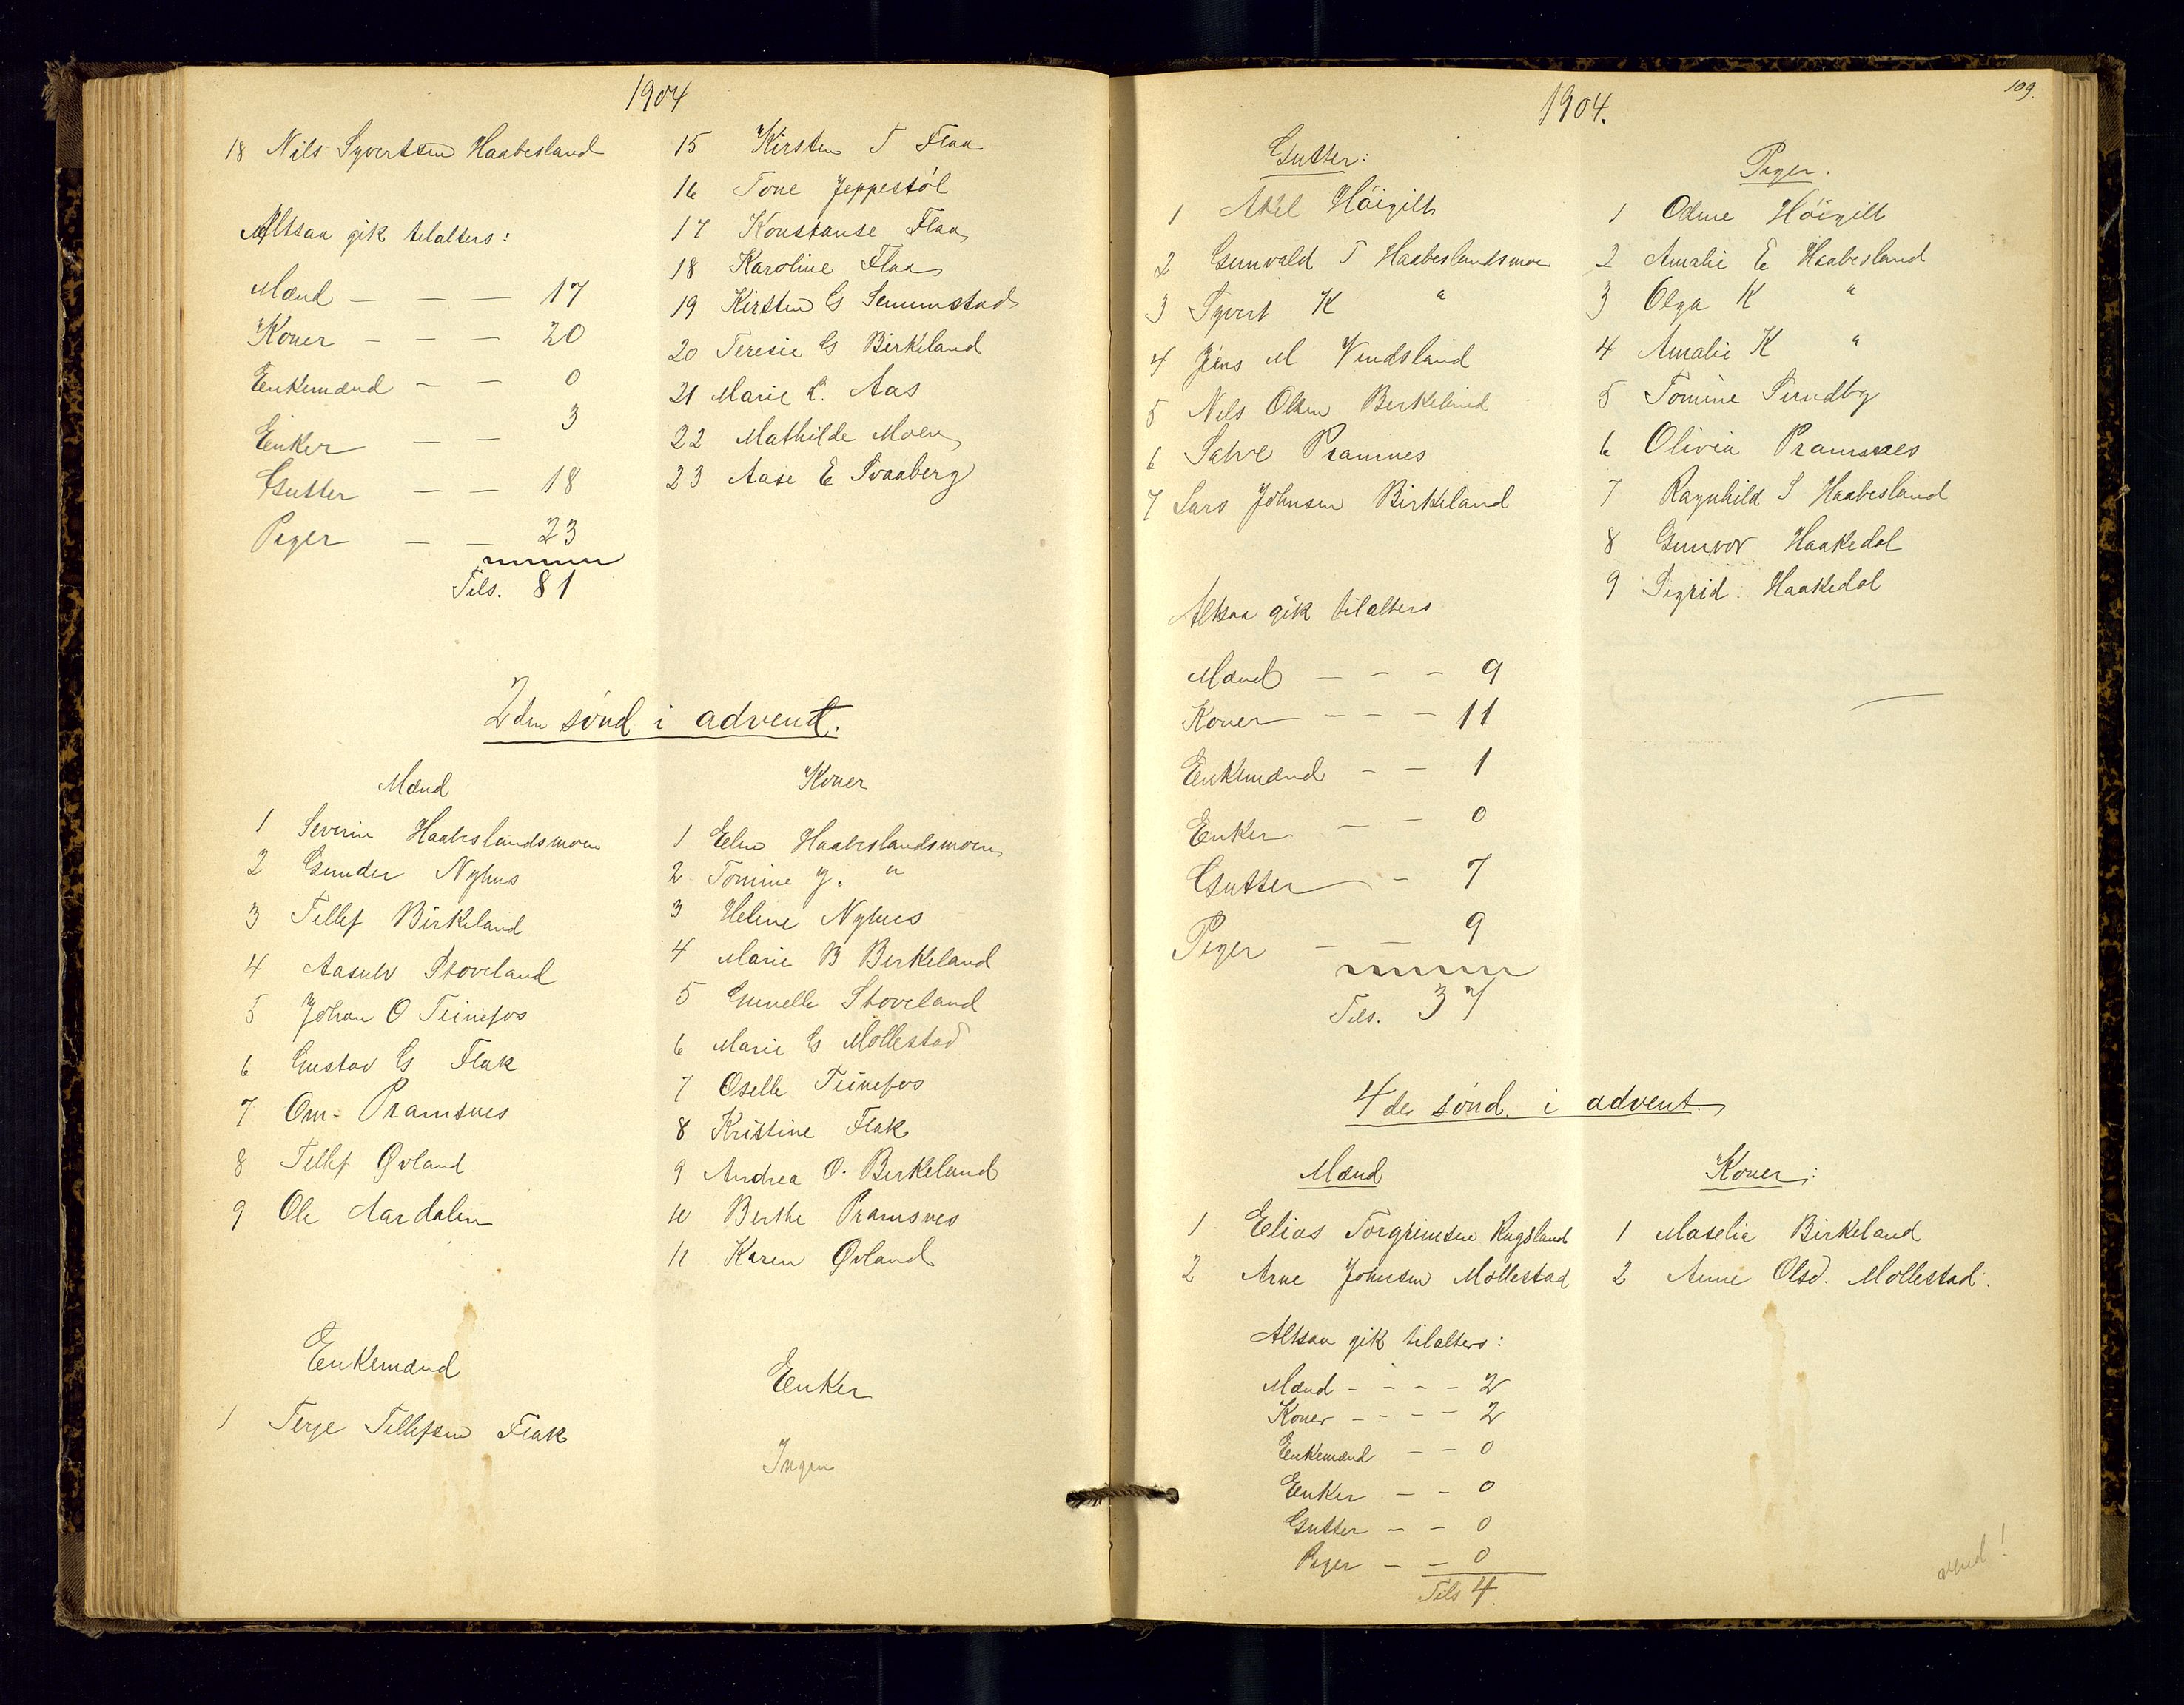 1904
18 Nils Syvertsen Haabesland
Altsaa gik tilalters:
Mænd — — — 17
Koner — — — 20
Enkemænd — — 0
Enker — — 3
Gutter — — 18
Piger — — 23
Tils. 81
15 Kirsten T Flaa
16 Tone Jeppestøl
17 Konstanse Flaa
18 Karoline Flaa
19 Kirsten G Senumstad
20 Teresie G Birkeland
21 Marie L. Aas
22 Mathilde Moen
23 Aase E Svaaberg
2den sønd i advent.
Mænd
1 Severin Haabeslandsmoen
2 Gunder Nyhus
3 Tellef Birkeland
4 Aasulv Stoveland
5 Johan O Teinefos
6 Gustav G Flak
7 Om- Pramsnes
8 Tellef Øvland
9 Ole Aardalen
Koner
1 Elen Haabeslandsmoen
2 Tomine J. "
3 Heline Nyhus
4 Marie B Birkeland
5 Gunelle Stoveland
6 Marie G Møllestad
7 Oselle Teinefos
8 Kristine Flak
9 Andrea O. Birkeland
10 Berthe Pramsnes
11 Karen Øvland
Enkemænd
1 Terje Tellefsen Flak
Enker
Ingen
109.
1904.
Gutter:
1 Aksel Høigilt
2 Gunvald T Haabeslandsmoen
3 Syvert K "
4 Jens M Vindsland
5 Nils Olsen Birkeland
6 Salve Pramnes
7 Lars Johnsen Birkeland
Piger.
1 Odine Høigilt
2 Amalie E Haabesland
3 Olga K "
4 Amalie K "
5 Tomine Sundby
6 Olivia Pramsnes
7 Ragnhild S Haabesland
8 Gunvor Haakedal
9 Sigrid Haakedal
Altsaa gik tilalters
Mænd — — — 9
Koner — — — 11
Enkemænd — — 1
Enker — — 0
Gutter — 7
Piger — — 9
Tils. 37
4de sønd. i advent.
Mænd
1 Elias Torgrimsen Rugsland
2 Arne Johnsen Møllestad
Koner:
1 Maselia Birkeland
2 Anne Olsd. Møllestad.
Altsaa gik tilalters:
Mænd - - - - 2
Koner - - - - 2
Enkemænd — — 0
Enker — — 0
Gutter — — 0
Piger — — 0
Tils 4.
vend!